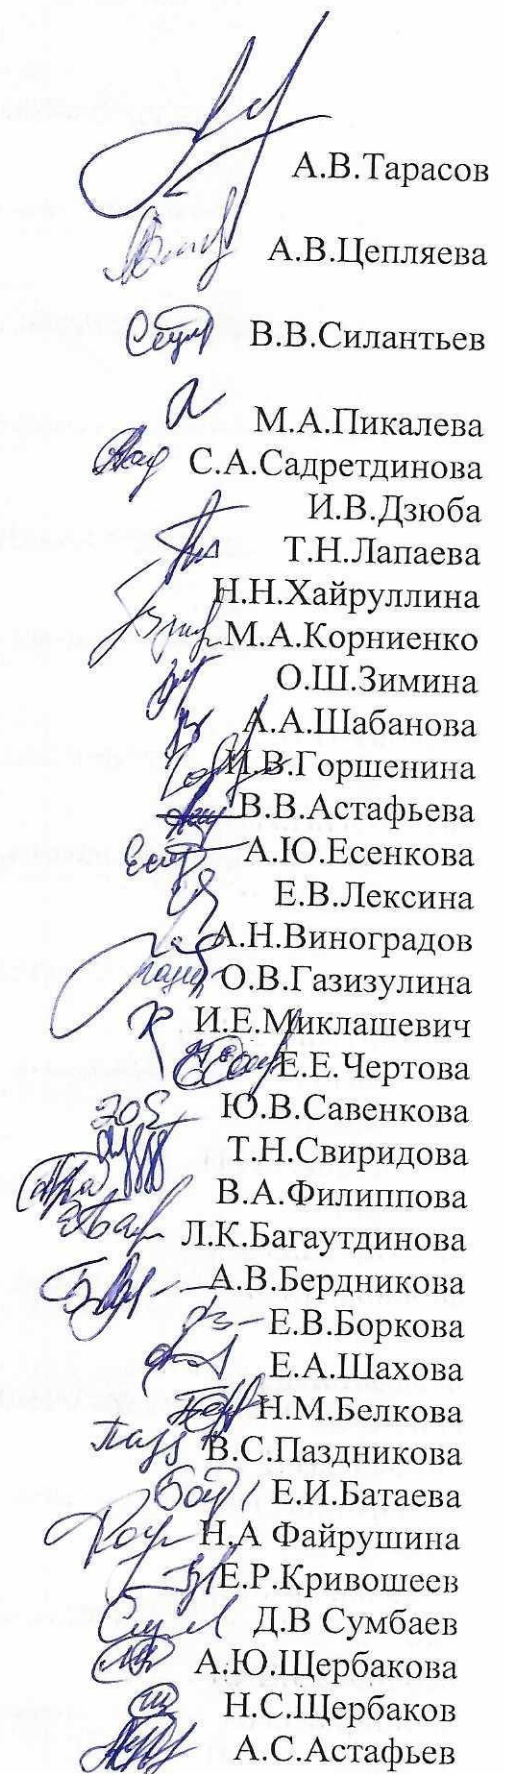 А.В.Тарасов
А.В.Цепляева
В.В.Силантьев
М.А.Пикалева
С.А.Садретдинова
И.В.Дзюба
Т.Н.Лапаева
Н.Н.Хайруллина
М.А.Корниенко
О.Ш.Зимина
А.А.Шабанова
И.В.Горшенина
В.В.Астафьева
А.Ю.Есенкова
Е.В.Лексина
А.Н.Виноградов
О.В.Газизулина
И.Е.Миклашевич
Е.Е.Чертова
Ю.В.Савенкова
Т.Н.Свиридова
В.А.Филиппова
Л.К.Багаутдинова
А.В.Бердникова
Е.В.Боркова
Е.А.Шахова
Н.М.Белкова
В.С.Паздникова
Е.И.Батаева
Н.А Файрушина
Е.Р.Кривошеев
Д.В Сумбаев
А.Ю.Щербакова
Н.С.Щербаков
А.С.Астафьев